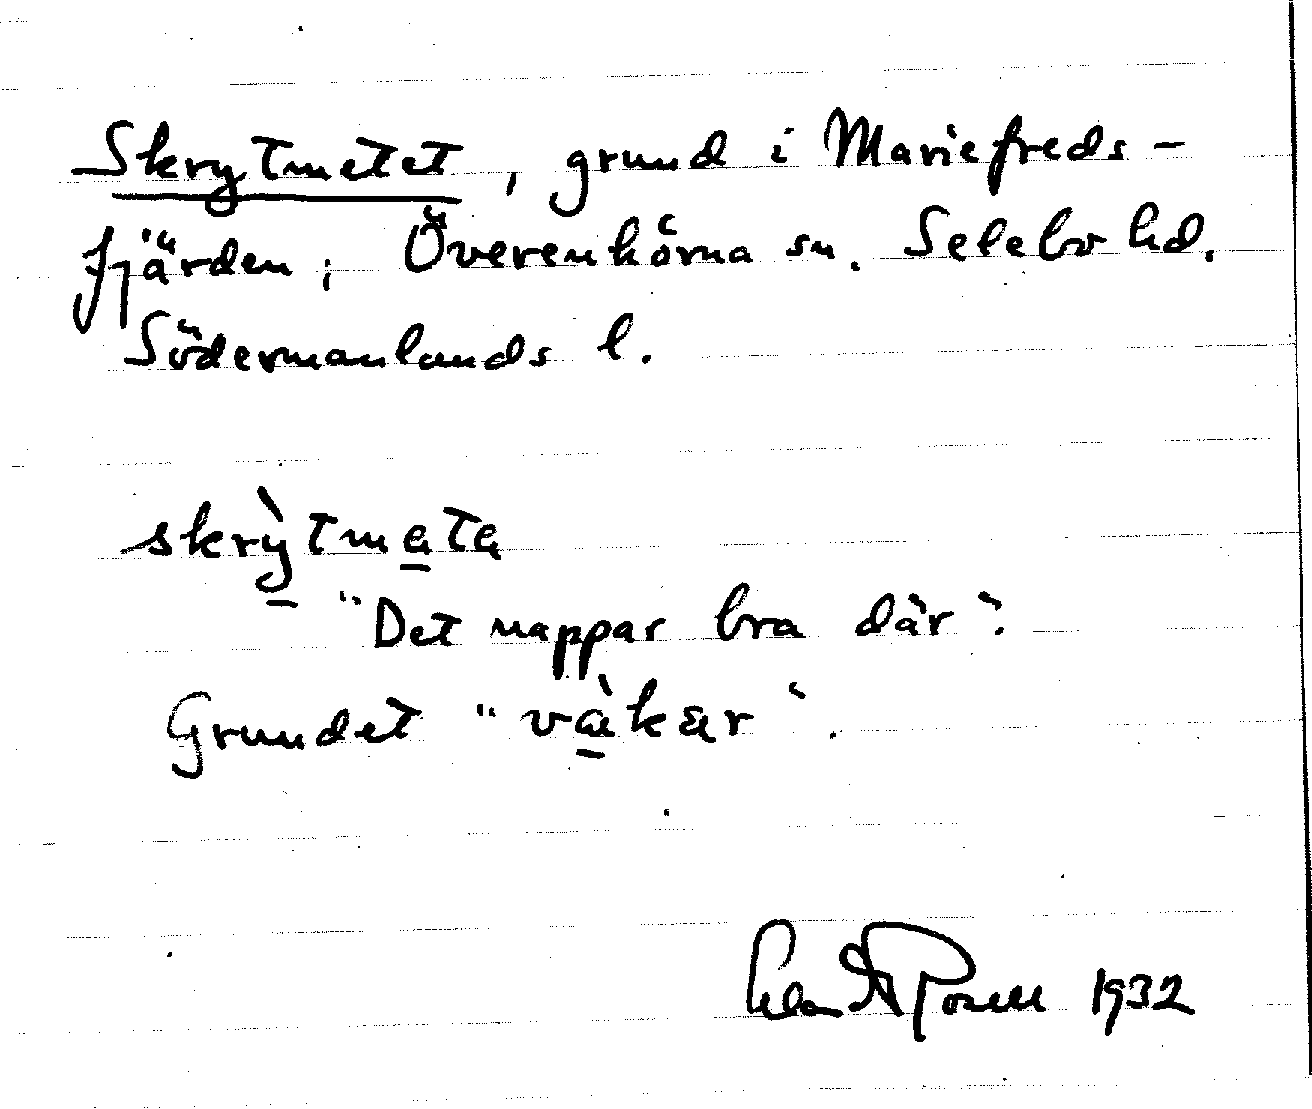 Skrytmetet, grund i Mariefreds-
fjärden; Överenhörna sn. Selebo hd.
Södermanlands l.
skrỳ̱tma̱ta
"Det nappar bra där".
Grundet "và̱kar".
1932